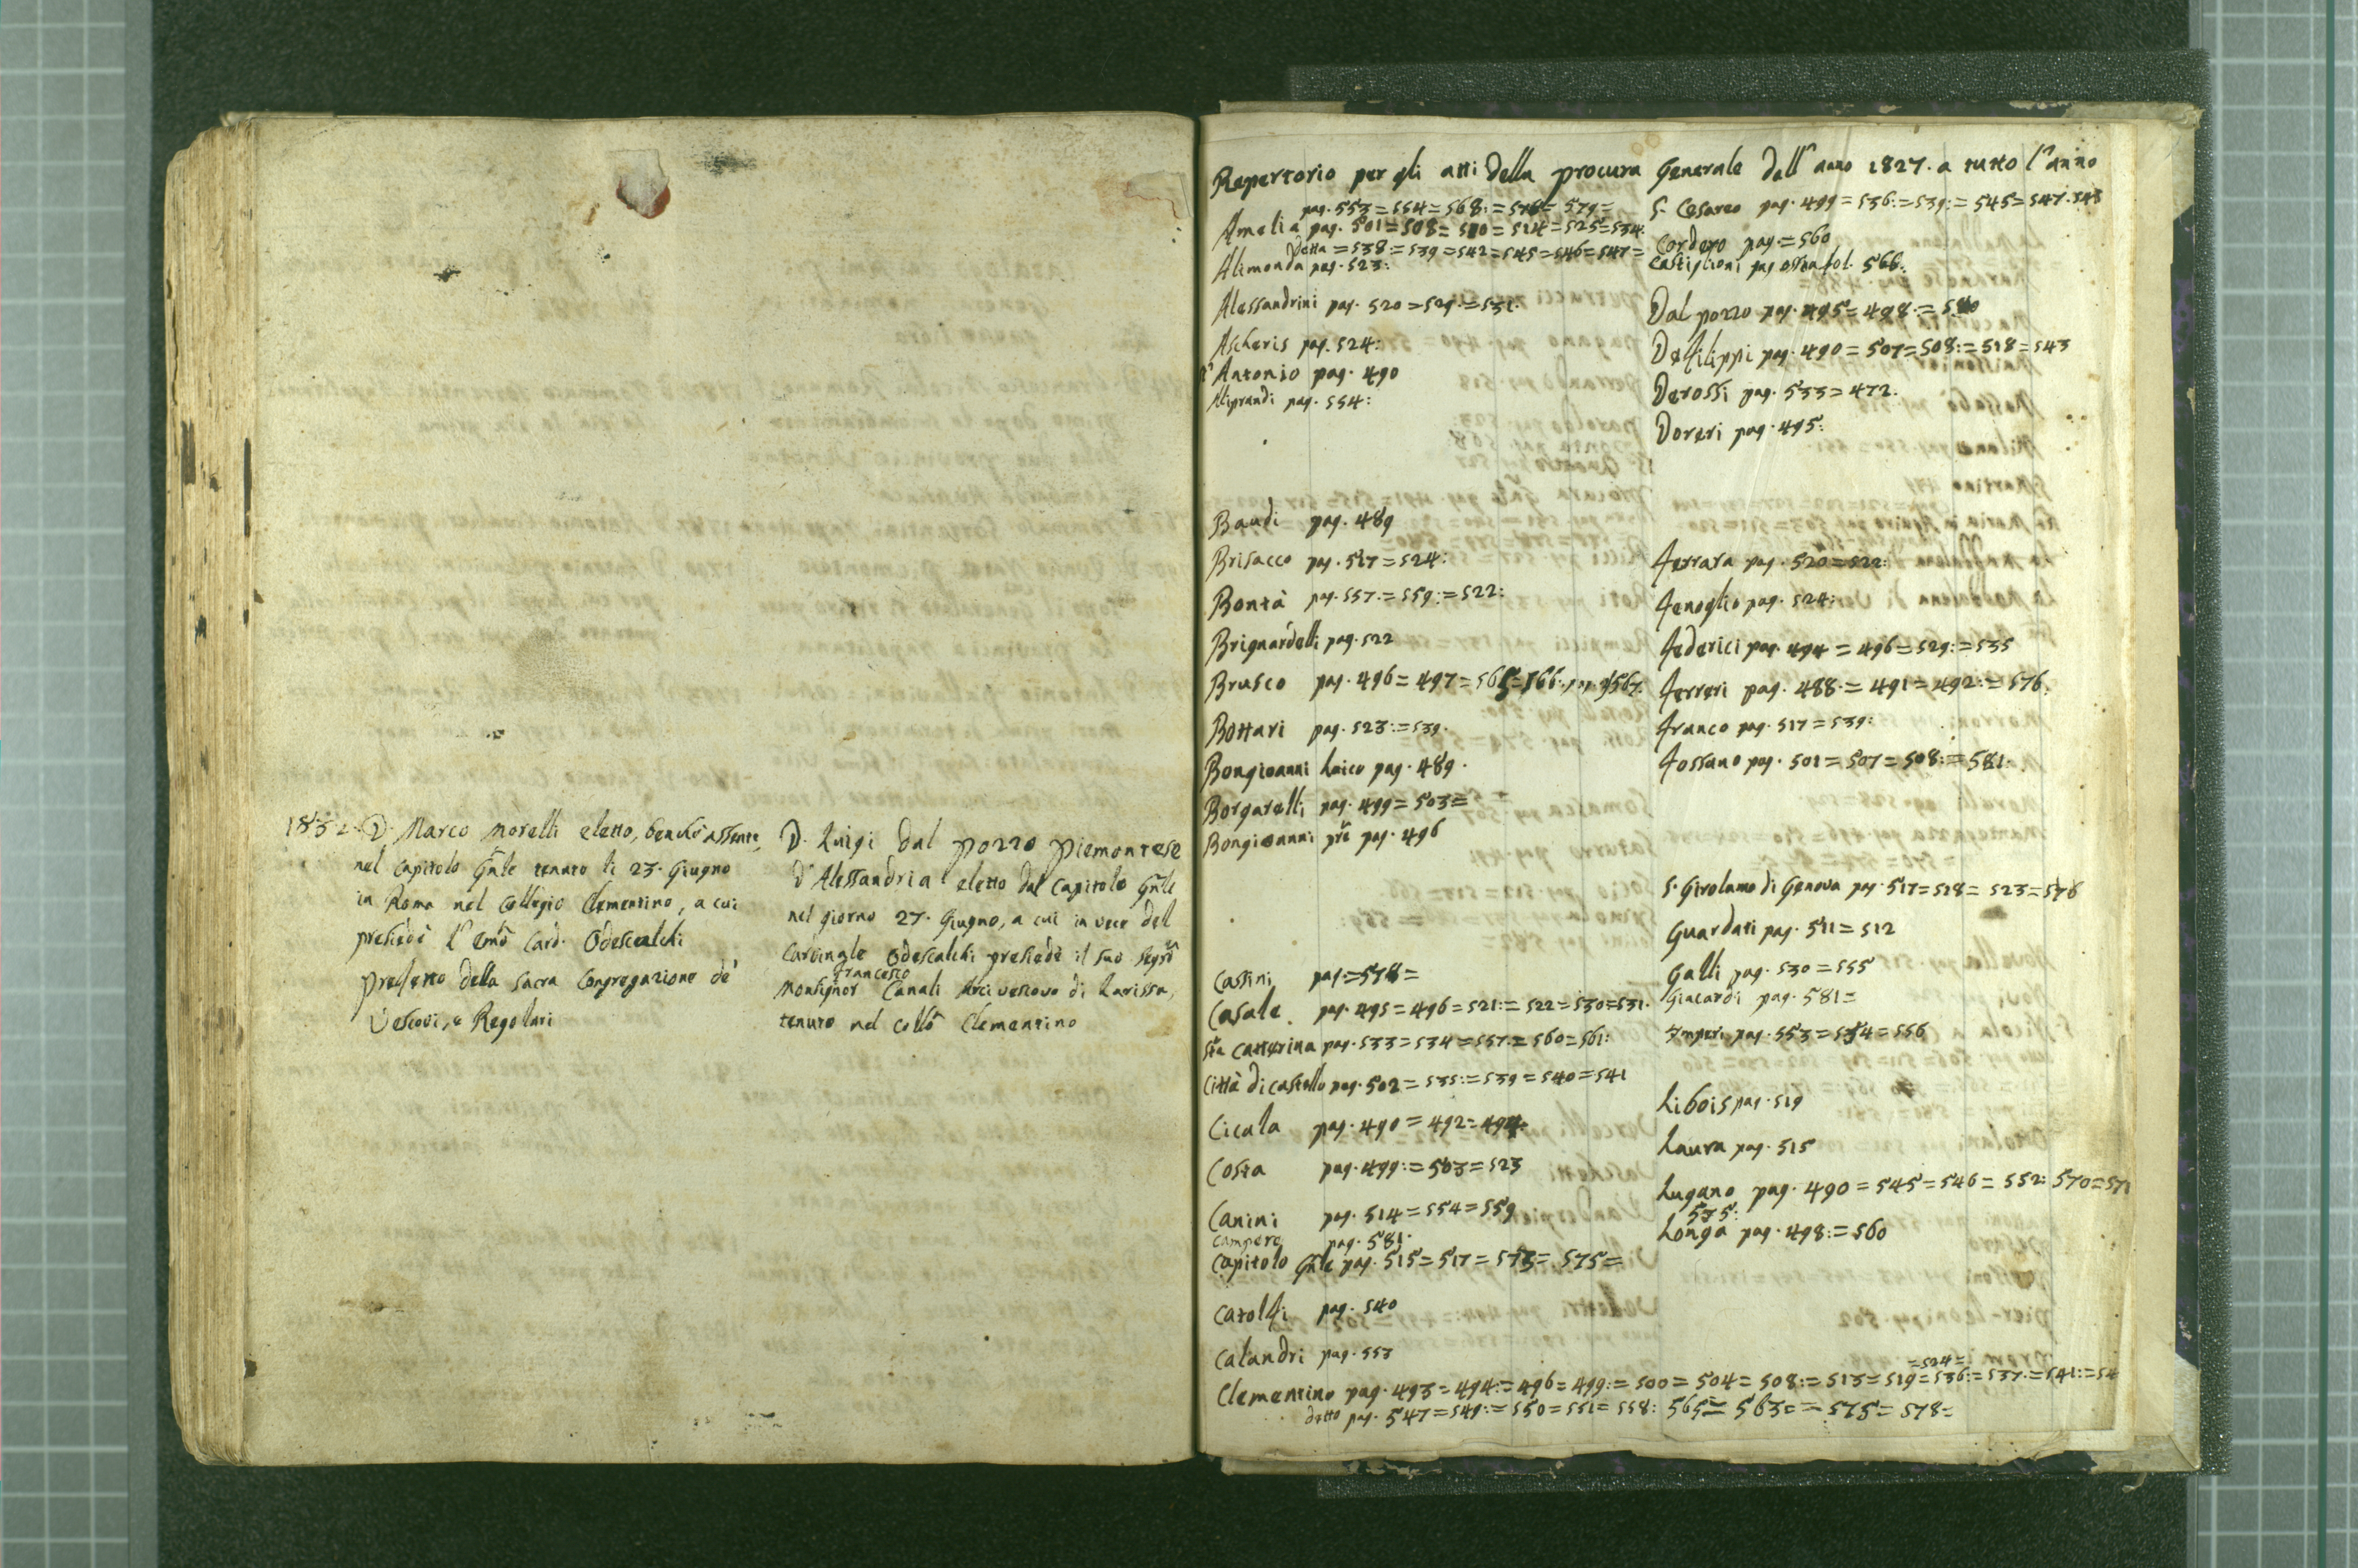 1832. D. Marco Morelli eletto, benchè assente,
nel Capitolo Gñle tenuto li 23. Giugno
in Roma nel Collegio Clementino, a cui
presiedè l'Emõ Card. Odescalchi
prefetto della Sacra Congregazione de'
Vescovi, e Regolari
D. Luigi dal pozzo piemontese
d'Alessandria eletto dal Capitolo Gñle
nel giorno 27. Giugno, a cui in vece del
Cardinale Odescalchi presiedè il suo
Monsignor Francesco Canali Arcivescovo di Larissa,
tenuto nel Collõ Clementino
Repertorio per gli atti della procura Generale dall'anno 1827. a tutto l'anno
pag. 553=554=568:= =579=
Amelia pag. 501=508=510=514=525=534
Detta =538:=539=542=545=546=547=
Alimonda pag. 523:
Alessandrini pag. 520=529:=531.
Ascheris pag. 524:
Antonio pag. 490
Aliprandi pag. 554:
Baudi pag. 489
Brisacco pag. 517=524:
Bontà pag. 557.=559:=522:
Brignardelli pag. 522
Brusco pag. 496=497=565=566.
Bottari pag. 523:=539.
Bongioanni Laico pag. 489.
Borgarelli pag. 499=503=
Bongioanni pre pag. 496
Cassini pag.=578=
Casale pag. 495=496=521:=522=530=531.
Sta Catterina pag. 533=534=557.=560=561:
Città di castello pag. 502=535:=539=540=541
Cicala pag. 490=492=494
Costa pag. 499:=503=523
Canini pag. 514=554=559
Campero pag. 581.
Capitolo Gñle pag. 515=517=573=.575=
Catolfi pag. 540
Calandri pag. 553
=524=
Clementino pag. 493=494:=496=499:=500=504=508:=513=519=536:=537.=541:=54
detto pag. 547=549:=550=551=558: 565= 563==575=578=
S. Cesareo pag. 499=536:=539:=545=547.548
Cordero pag.=560
Castiglioni pag. ossia fol. 566:
Dal pozzo pag. 495=498:=
Defilippi pag. 490=507=508:=518=543
Derossi pag. 533=472.
Doreri pag. 495:
Ferrara pag. 520=522:
Fenoglio pag. 524:
Federici pag. 494=496=529:=535
Ferreri pag. 488.=491=492:=576.
Franco pag. 517=539:
Fossano pag. 501=507=508:=581.
S. Girolamo di Genova pag. 517=518=523=576
Guardati pag. 511=512
Galli pag. 530=555
Giacardi pag. 581=
Imperi pag. 553=554=556
Libois pag. 519
Laura pag. 515
Lugano pag. 490=545=546=552: 570=571
575:
Longa pag. 498:=560